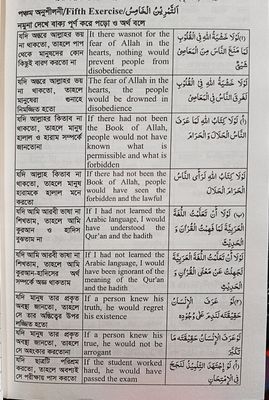 পঞ্চম অনুশীলনী/Fifth Exercise/اَلتَّمْرِيْنُ الْخَامِسُ
নমুনা দেখে বাক্য পূর্ণ করে পড়ো ও অর্থ বলে
যদি অন্তরে আল্লাহর ভয়
না থাকতো, তাহলে পাপ
থেকে মানুষদের কোন
কিছুই বারণ করতো না
It there wasnot for the
fear of Allah in the
hearts, nothing would
prevent people from
disobedience
لَوْلَا خَشْيَةُ اللهِ فِي الْقُلُوْبِ
لَمَا مَنَعَ النَّاسَ مِنَ الْمَعَاصِيْ
شَيْئٌ
যদি অন্তরে আল্লাহর ভয়
না থাকতো, তাহলে
মানুষেরা গুনাহে
নিমজ্জিত হতো
The fear of Allah in the
hearts, the people
would be drowned in
disobedience
لَوْلَا خَشْيَةُ اللهِ فِي الْقُلُوْبِ
لَغَرِقَ النَّاسُ فِي الْمَعَاصِيْ
যদি আল্লাহর কিতাব না
থাকতো, তাহলে মানুষ
হালাল ও হারাম সম্পর্কে
জানতোনা
If there had not been
the Book of Allah,
people would not have
known what is
permissible and what is
forbidden
لَوْلَا كِتَابُ اللهِ لَمَا عَرَفَ
النَّاسُ الْحَلَالَ وَ الْحَرَامَ
যদি আল্লাহর কিতাব না
থাকতো, তাহলে মানুষ
হারামকে হালাল মনে
করতো
If there had not been the
Book of Allah, people
would have seen the
forbidden and the lawful
لَوْلَا كِتَابُ اللهِ لَرَأَى النَّاسُ
الْحَرَامَ الْحَلَالَ
যদি আমি আরবী ভাষা না
শিখতাম, তাহলে আমি
কুরআন ও হাদিস
বুঝতাম না
If I had not learned the
Arabic language, I would
have understood the
Qur'an and the hadith
لَوْلَا أَنْ تَعَلَّمْتُ اللُّغَةَ
الْعَرَبِيَّةَ لَمَا فَهِمْتُ الْقُرْآنَ وَ
الْحَدِيْثَ
যদি আমি আরবী ভাষা না
শিখতাম, তাহলে আমি
কুরআন-হাদিসের অর্থ
সম্পর্কে অজ্ঞ থাকতাম
If I had not learned the
Arabic language, I would
have been ignorant of the
meaning of the Qur'an
and the hadith
لَوْلَا أَنْ تَعَلَّمْتُ اللُّغَةَ الْعَرَبِيَّةَ
لَجَهِلْتُ عَنْ مَعْنَى الْقُرْآنِ وَ
الْحَدِيْثِ
যদি মানুষ তার প্রকৃত
অবস্থা জানতো, তাহলে
সে তার অস্তিত্বের উপর
লজ্জিত হতো
If a person knew his
truth, he would regret
his existence
لَوْ عَرَفَ الْإِنْسَانُ
حَقِيْقَتَهُ لَنَدِمَ عَلَى وُجُوْدِهِ
যদি মানুষ তার প্রকৃত
অবস্থা জানতো, তাহলে
সে অহংকার করতোনা
If a person knew his
true, he would not be
arrogant
لَوْ عَرَفَ الْإِنْسَانُ حَقِيْقَتَهُ مَا
تَكَبَّرَ
যদি ছাত্রটি পরিশ্রম
করতো, তাহলে অবশ্যই
সে পরীক্ষায় পাস করতো
If the student worked
hard, he would have
passed the exam
لَوْ اِجْتَهَدَ التِّلْمِيْذُ لَنَجَحَ
فِي الْاِمْتِحَانِ